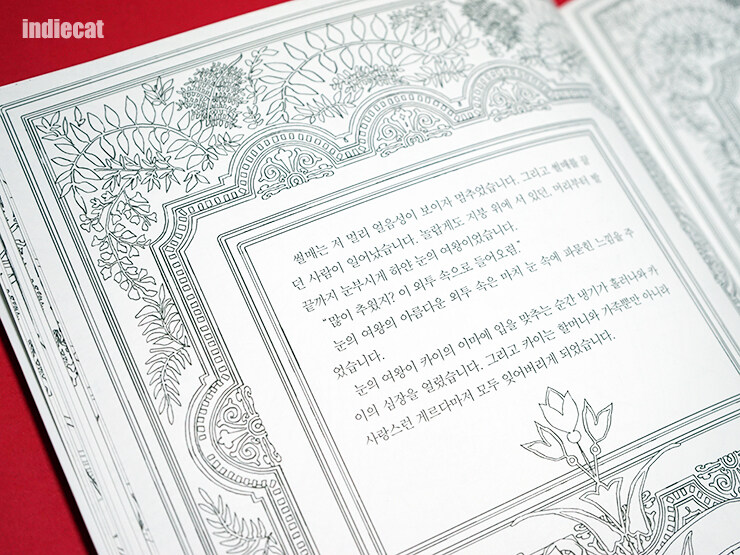 indiecat
썰매는 저 멀리 얼음성이 보이자 멈추었습니다. 그리고 썰매를 끌
던 사람이 일어났습니다. 놀랍게도 지붕 위에 서 있던, 머리부터 발
끝까지 눈부시게 하얀 눈의 여왕이었습니다.
"많이 추웠지? 이 외투 속으로 들어오렴."
눈의 여왕의 아름다운 외투 속은 마치 눈 속에 파묻힌 느낌을 주
었습니다.
눈의 여왕이 카이의 이마에 입을 맞추는 순간 냉기가 흘러나와 카
이의 심장을 얼렸습니다. 그리고 카이는 할머니와 가족뿐만 아니라
사랑스런 게르다마저 모두 잊어버리게 되었습니다.